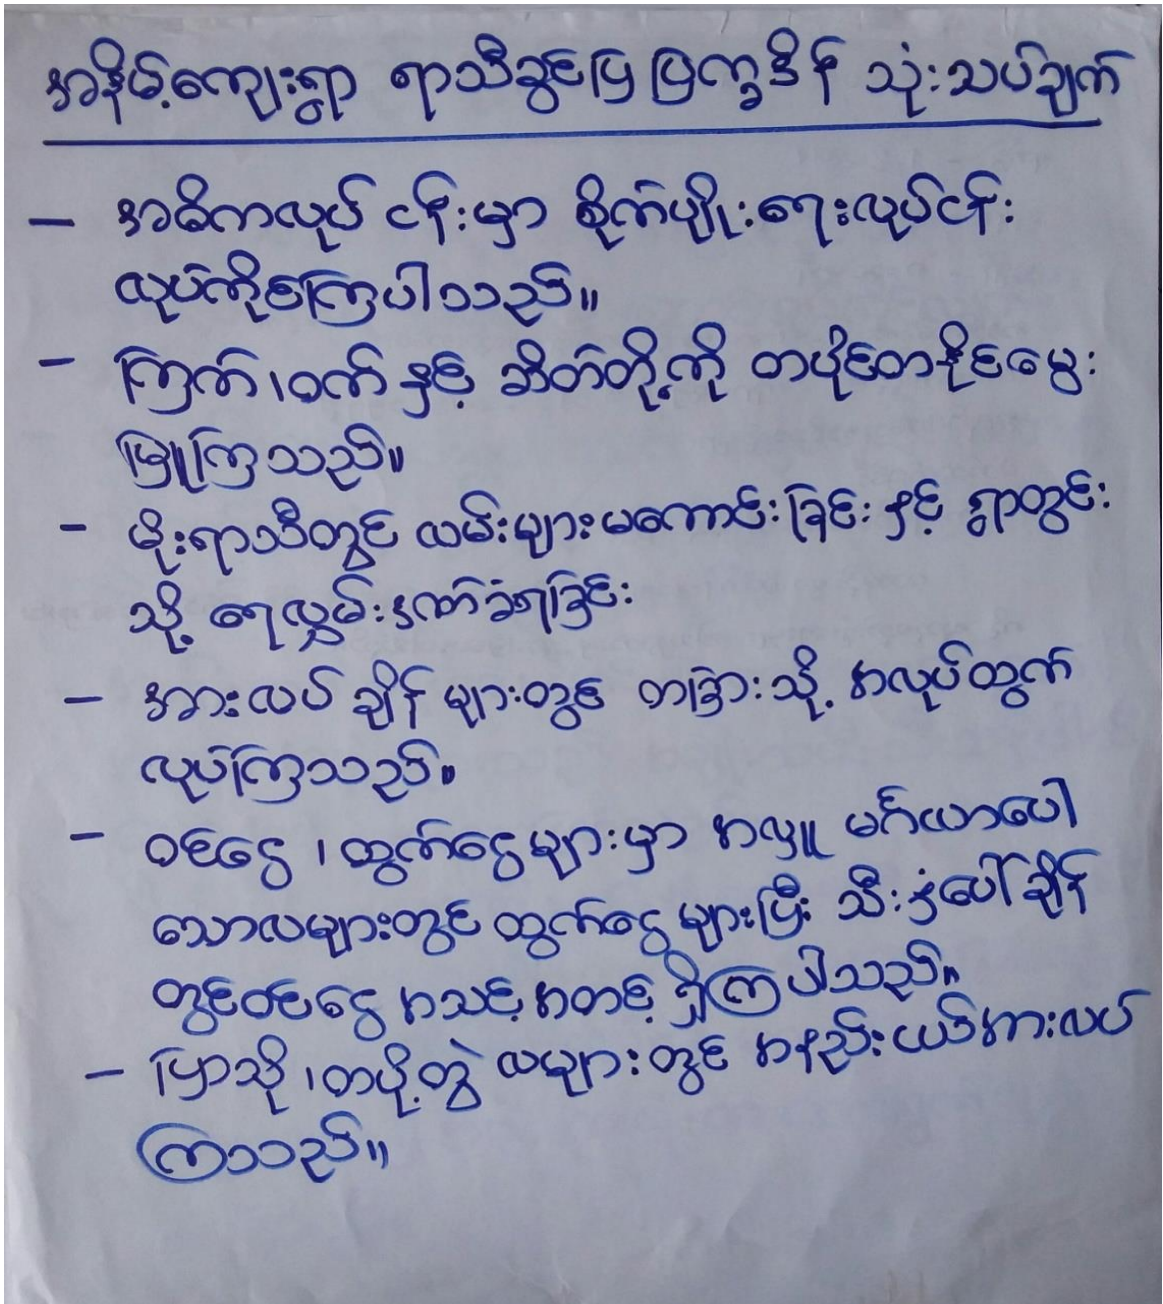 အနိမ့်ကျေးရွာ ရာသီခွင်ပြ ပြက္ခဒိန် သုံးသပ်ချက်
- အဓိကလုပ်ငန်းမှာ စိုက်ပျိုးရေးလုပ်ငန်း
လုပ်ကိုင်ကြပါသည်။
- ကြက်၊ဝက်နှင့် ဆိတ်တို့ကို တပိုင်တနိုင်မွေး
မြူကြသည်။
- မိုးရာသီတွင် လမ်းများမကောင်းခြင်းနှင့် ရွာတွင်း
သို့ ရေလွှမ်းဏ်ခံရခြင်း
- အားလပ်ချိန်များတွင် တခြားသို့ အလုပ်ထွက်
လုပ်ကြသည်။
- ဝင်ငွေ၊ထွက်ငွေများမှာ အလှူ မင်္ဂလာပေါ
သောလများတွင် ထွက်ငွေများပြီး သီးနှံပေါ်ချိန်
တွင်ဝင်ငွေ အသင့်အတင့် ရှိကြပါသည်။
- ပြာသို၊တပို့တွဲ လများတွင် အနည်းငယ်အားလပ်
ကြသည်။